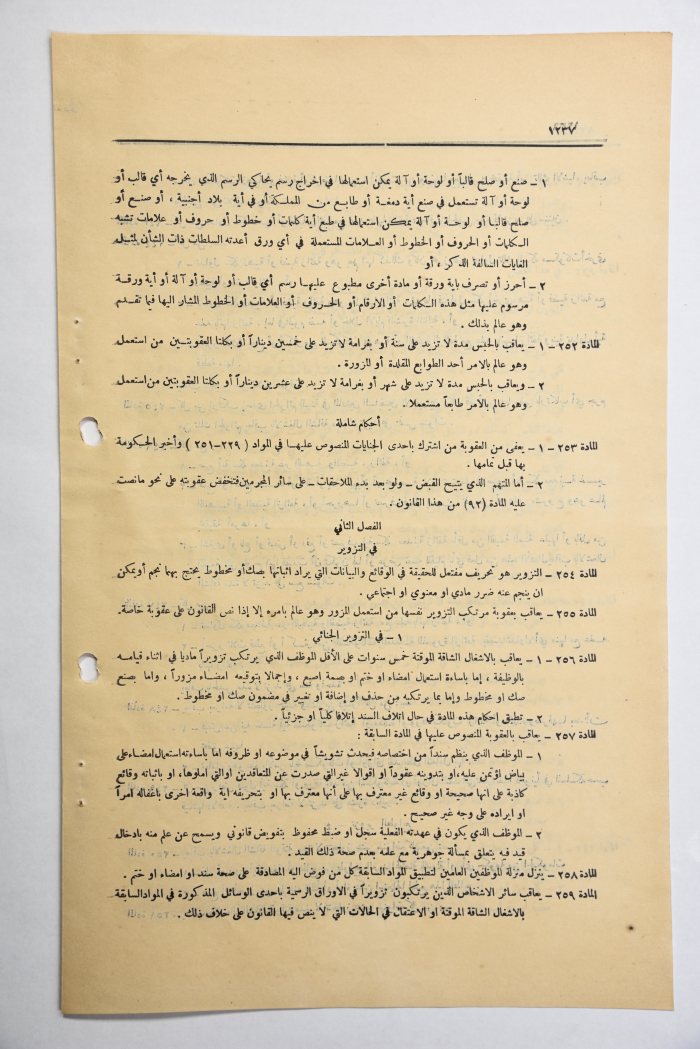 ١٢٣٧
١ – صنع أو صلح قالباً أو لوحة أو آلة يمكن استعمالها في اخراج رسم يحاكي الرسم الذي يخرجه أي قالب أو
لوحة أو آلة تستعمل في صنع أية دمغة أو طابع من المملكة أو في أية بلاد أجنبية ، أو صنع أو
صلح قالباً أو لوحة أو آلة يمكن استعمالها في طبع أية كلمات أو خطوط أو حروف أو علامات تشبه
الكلمات أو الحروف أو الخطوط أو العلامات المستعملة في أي ورق أعدته السلطات ذات الشأن لمثل
الغايات السالفة الذكر ، أو
٢ – أحرز أو تصرف باية ورقة أو مادة أخرى مطبوع عليها رسم أي قالب أو لوحة أو آلة أو أية ورقة
مرسوم عليها مثل هذه الكلمات أو الارقام أو الحروف أو العلامات أو الخطوط المشار اليها فيما تقدم
وهو عالم بذلك .
المادة ٢٥٢ – ١ – يعاقب بالحبس مدة لا تزيد على سنة أو بغرامة لاتزيد على خمسين ديناراً أو بكلتا العقوبتين من استعمل
وهو عالم بالامر أحد الطوابع المقلدة أو المزورة .
٢ – ويعاقب بالحبس مدة لا تزيد على شهر أو بغرامة لا تزيد على عشرين ديناراً أو بكلتا العقوبتين من استعمل
وهو عالم بالامر طابعاً مستعملا .
أحكام شاملة
المادة ٢٥٣ – ١ – يعفى من العقوبة من اشترك باحدى الجنايات المنصوص عليها في المواد ( ٢٣٩–٢٥١ ) وأخبر الحكومة
بها قبل تمامها .
٢ – أما المتهم الذي يتيح القبض – ولو بعد بدء الملاحقات – على سائر المجرمين فتخفض عقوبته على نحو مانصت
عليه المادة (٩٢) من هذا القانون .
الفصل الثاني
في التزوير
المادة ٢٥٤ – التزوير هو تحريف مفتعل للحقيقة في الوقائع والبيانات التي يراد اثباتها بصك أو مخطوط يحتج بهما نجم أو يمكن
ان ينجم عنه ضرر مادي او معنوي او اجتماعي .
المادة ٢٥٥ – يعاقب بعقوبة مرتكب التزوير نفسها من استعمل المزور وهو عالم بامره إلا إذا نص القانون على عقوبة خاصة .
١ – في التزوير الجنائي
المادة ٢٥٦ – ١ – يعاقب بالاشغال الشاقة الموقتة خمس سنوات على الأقل الموظف الذي يرتكب تزويراً ماديا في اثناء قيامه
بالوظيفة ، إما باساءة استعمال امضاء او ختم او بصمة اصبع ، وإجمالا بتوقيعه امضاء مزوراً ، واما بصنع
صك او مخطوط وإما بما يرتكبه من حذف او إضافة او تغيير في مضمون صك او مخطوط .
٢ – تطبق احكام هذه المادة في حال اتلاف السند إتلافا كلياً او جزئياً .
المادة ٢٥٧ – يعاقب بالعقوبة المنصوص عليها في المادة السابقة :
١ – الموظف الذي ينظم سنداً من اختصاصه فيحدث تشويشاً في موضوعه او ظروفه اما باساءته استعمال امضاء على
بياض اؤتمن عليه، او بتدوينه عقوداً او اقوالا غير التي صدرت عن المتعاقدين او التي املوها، او باثباته وقائع
كاذبة على انها صحيحة او وقائع غير معترف بها على أنها معترف بها او بتحريفه اية واقعة اخرى باغفاله امراً
او ايراده على وجه غير صحيح .
٢ – الموظف الذي يكون في عهدته الفعلية سجل او ضبط محفوظ بتفويض قانوني ويسمح عن علم منه بادخال
قيد فيه يتعلق بمسألة جوهرية مع علمه بعدم صحة ذلك القيد .
المادة ٢٥٨ – ينزل منزلة الموظفين العامين لتطبيق المواد السابقة كل من فوض اليه المصادقة على صحة سند او امضاء او ختم .
المادة ٢٥٩ – يعاقب سائر الاشخاص الذين يرتكبون تزويراً في الاوراق الرسمية باحدى الوسائل المذكورة في المواد السابقة
بالاشغال الشاقة الموقتة او الاعتقال في الحالات التي لا ينص فيها القانون على خلاف ذلك .